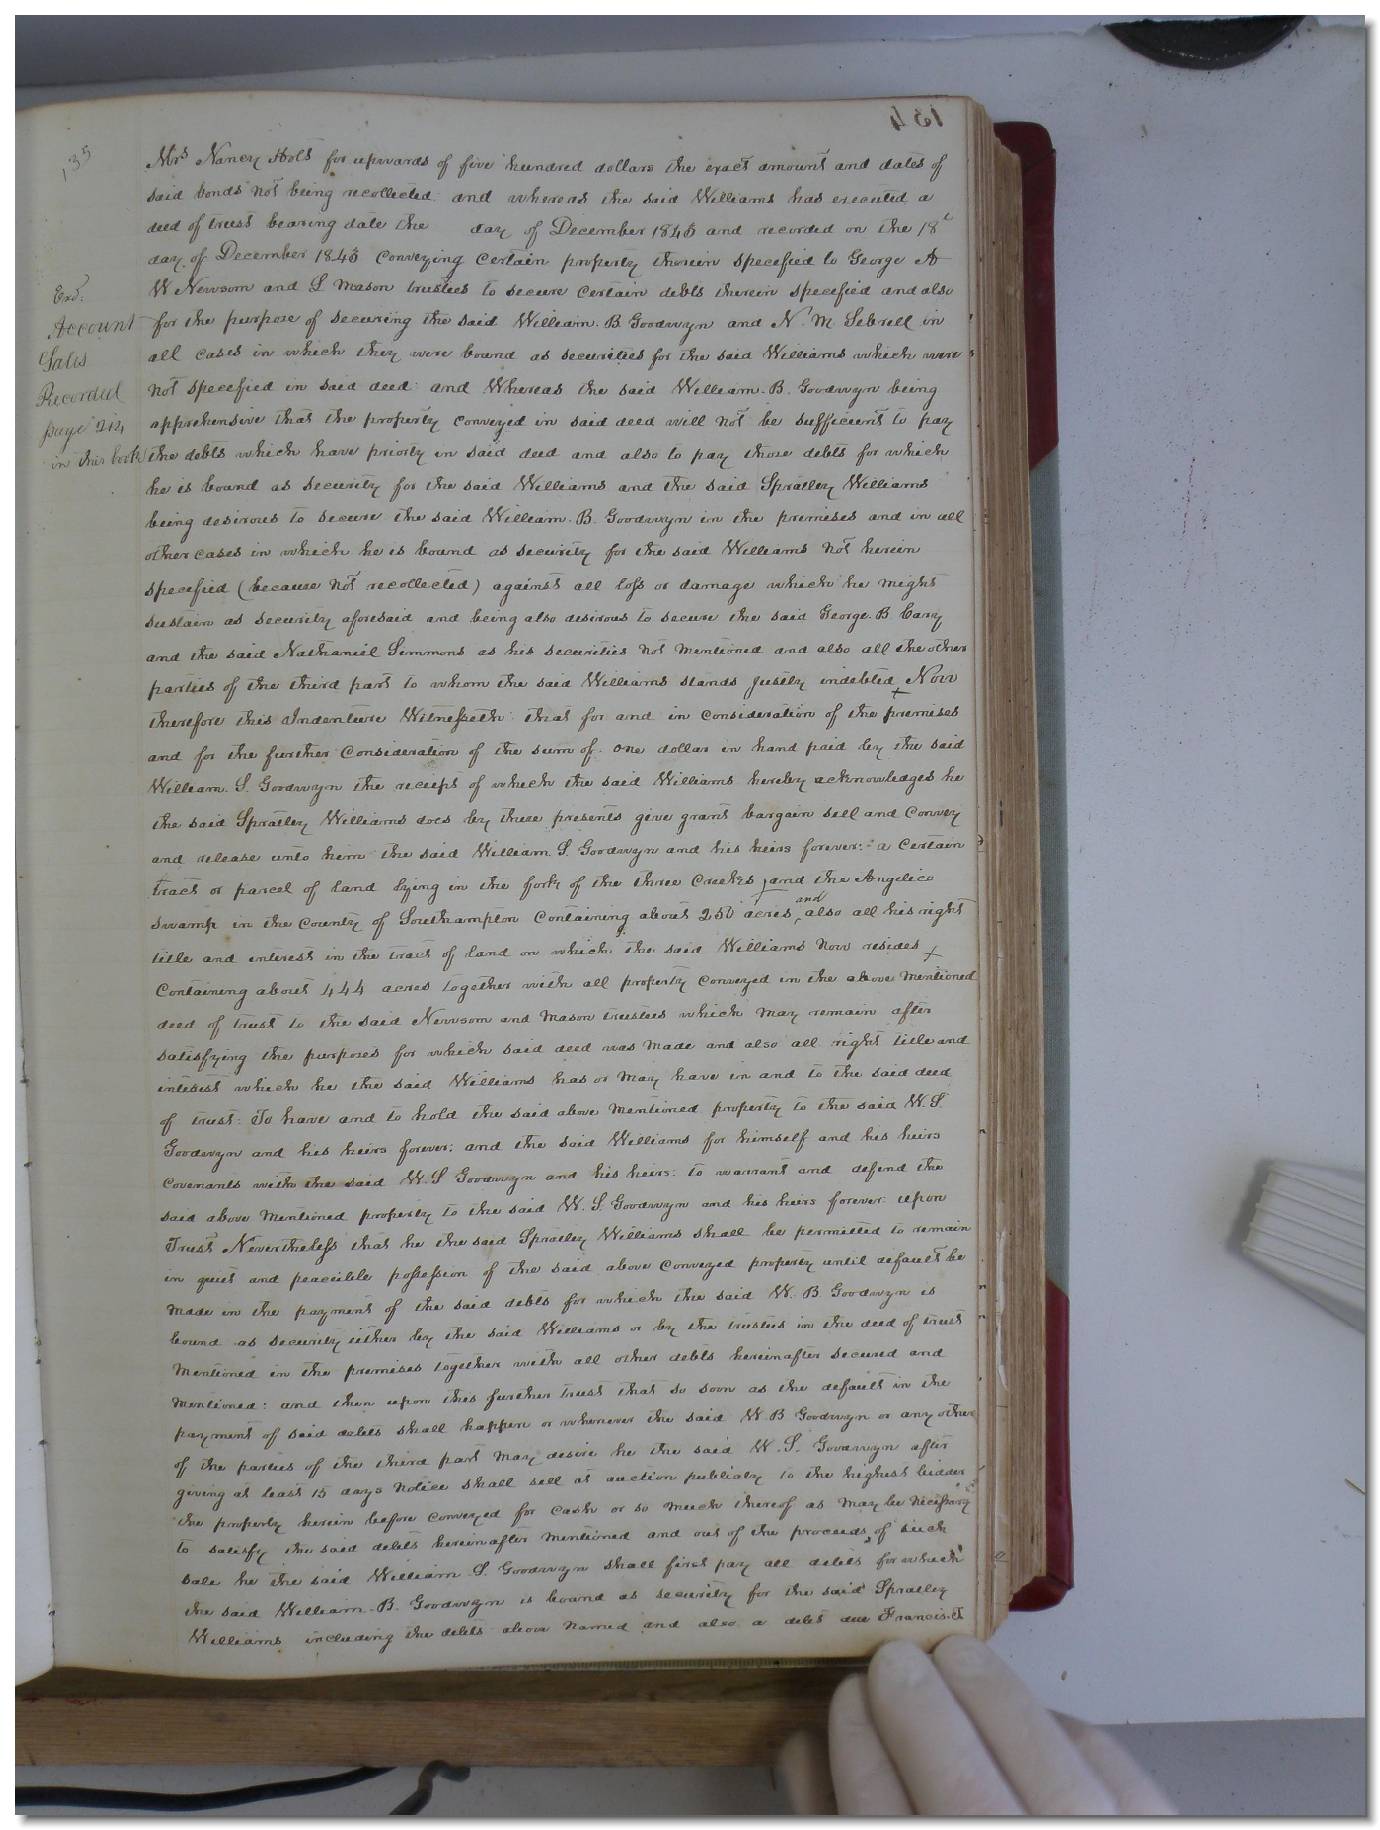 135
Mrs Nancy Holt for upwards of five hundred dollars the exact amount and dates of
said bonds not being recollected and whereas the said Williams has executed a
deed of trust bearing date the day of December 1843 and recorded on the 18
day of December 1843 conveying certain property therein specefied to George A
W Newsom and S Mason trustees to secure certain debts therein specefied and also
for the purpose of securing the said William. B. Goodwyn and N. M Sebrell in
all cases in which they were bound as securities for the said Williams which were
not specefied in said deed: and Whereas the said William. B. Goodwyn being
apprehensive that the property conveyed in said deed will not be sufficient to pay
the debts which have priorty in said deed and also to pay those debts for which
he is bound as security for the said Williams and the said Spratley Williams
being desirous to secure the said William. B. Goodwyn in the premises and in all
other cases in which he is bound as security for the said Williams not herein
specefied (because not recollected) against all loss or damage which he might
sustain as security aforesaid and being also desirous to secure the said George. B Cary
and the said Nathaniel Simmons as his securities not mentioned and also all the other
parties of the third part to whom the said Williams stands justly indebted Now
therefore this Indenture Witnesseth: that for and in consideration of the premises
and for the further consideration of the sum of one dollar in hand paid by the said
William. S. Goodwyn the receipt of which the said Williams hereby acknowledges he
the said Spratley Williams does by these presents give grant bargain sell and convey
and release unto him the said William S. Goodwyn and his heirs forever: a certain
tract or parcel of land lying in the fork of the three creeks and the Angelico
swamp in the County of Southampton containing about 250 acres and also all his right
title and interest in the tract of land on which the said Williams now resides
containing about 444 acres together with all property conveyed in the above mentioned
deed of trust to the said Newsom and Mason trustees which may remain after
satisfying the purposes for which said deed was made and also all right title and
interest which he the said Williams has or may have in and to the said deed
of trust: To have and to hold the said above mentioned property to the said W. S.
Goodwyn and his heirs forever: and the said Williams for himself and his heirs
covenants with the said W. S Goodwyn and his heirs: to warrant and defend the
said above mentioned property to the said W. S. Goodwyn and his heirs forever: upon
Trust Nevertheless that he the said Spratley Williams shall be permitted to remain
in quiet and peacible possession of the said above conveyed property until default be
made in the payment of the said debts for which the said W. B Goodwyn is
bound as security either by the said Williams or by the trustees in the deed of trust
mentioned in the premises together with all other debts hereinafter secured and
mentioned: and then upon this further trust that so soon as the default in the
payment of said debts shall happen or whenever the said W B Goodwyn or any other
of the parties of the third part may desire he the said W. S. Goodwyn after
giving at least 15 days notice shall sell at auction publicly to the highest bidder
the property herein before conveyed for cash or so much thereof as may be necessary
to satisfy the said debts hereinafter mentioned and out of the proceeds of such
sale he the said William S. Goodwyn shall first pay all debts for which
the said William. B. Goodwyn is bound as security for the said Spratley
Williams including the debts above named and also a debt due Francis. T
Account
Sales
Recorded
page 214
in this book
134